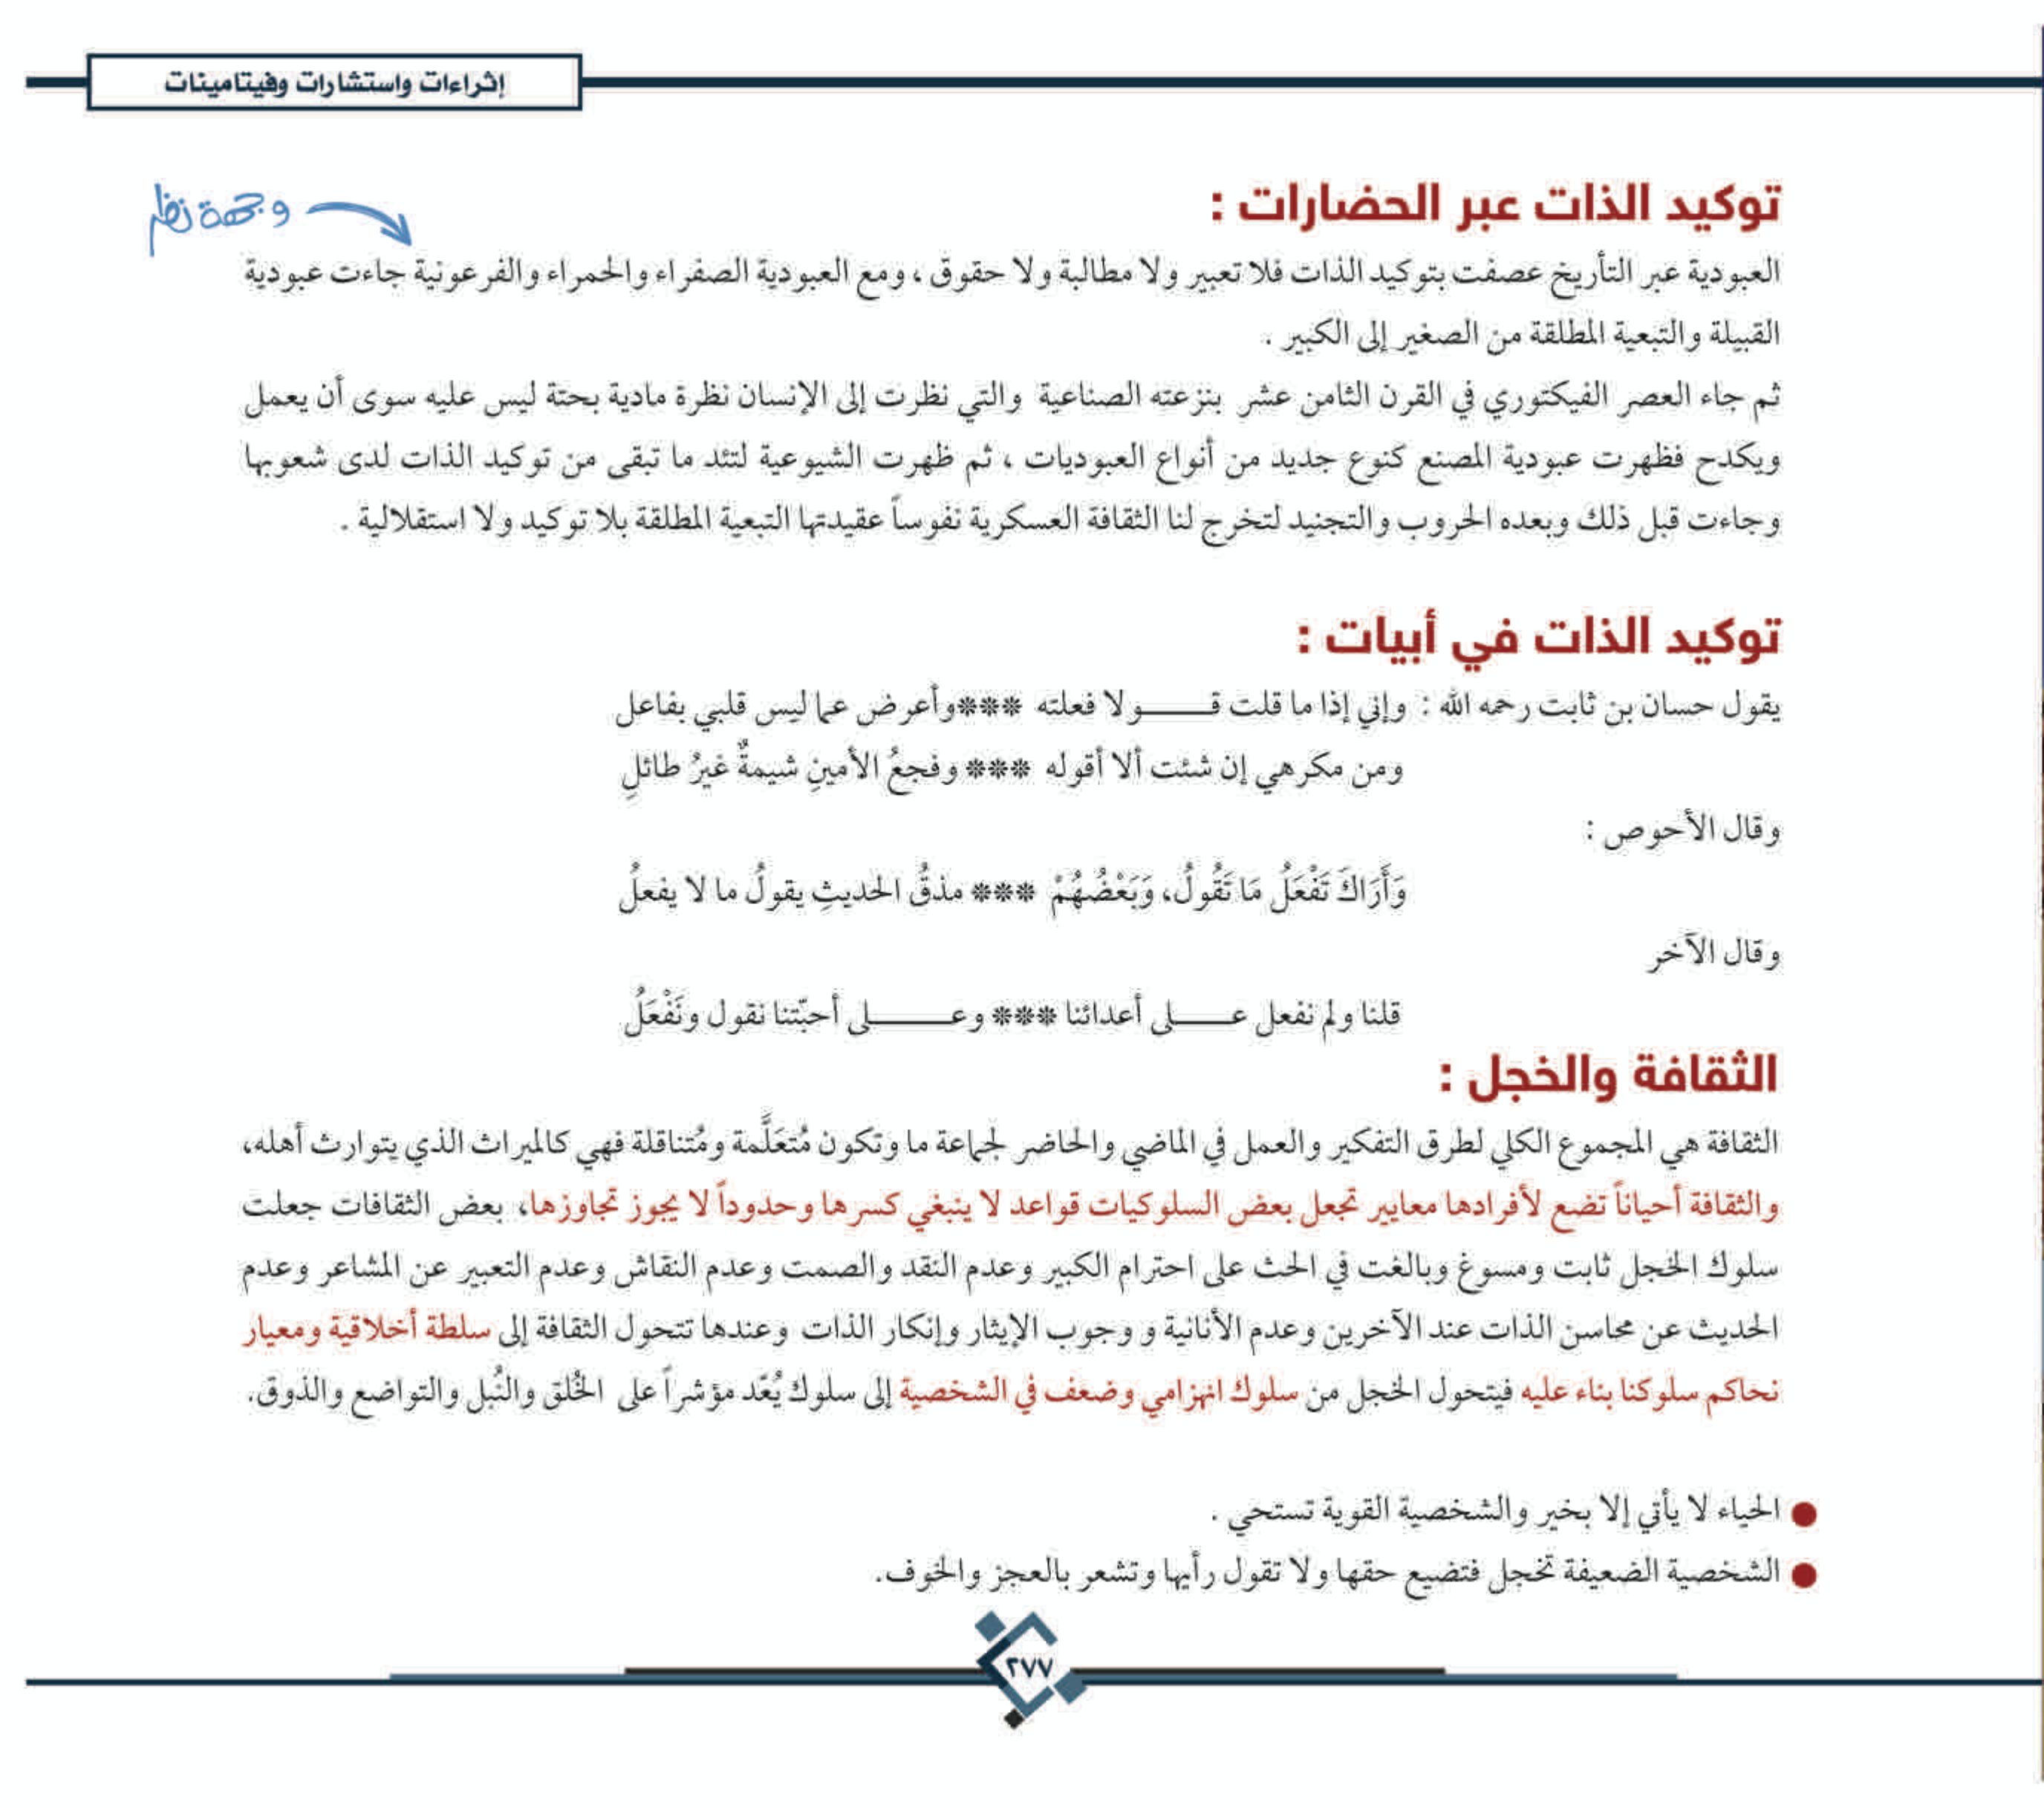 إثراءات واستشارات وفيتامينات
وجهة نظر
توكيد الذات عبر الحضارات :
العبودية عبر التأريخ عصفت بتوكيد الذات فلا تعبير ولا مطالبة ولا حقوق ، ومع العبودية الصفراء والحمراء والفرعونية جاءت عبودية
القبيلة والتبعية المطلقة من الصغير إلى الكبير .
ثم جاء العصر الفيكتوري في القرن الثامن عشر بنزعته الصناعية والتي نظرت إلى الإنسان نظرة مادية بحتة ليس عليه سوى أن يعمل
ويكدح فظهرت عبودية المصنع كنوع جديد من أنواع العبوديات ، ثم ظهرت الشيوعية لتئد ما تبقى من توكيد الذات لدى شعوبها
وجاءت قبل ذلك وبعده الحروب والتجنيد لتخرج لنا الثقافة العسكرية نفوساً عقيدتها التبعية المطلقة بلا توكيد ولا استقلالية .
توكيد الذات في أبيات :
يقول حسان بن ثابت رحمه الله : وإني إذا ما قلت قـــــــولا فعلته ***وأعرض عما ليس قلبي بفاعل
ومن مكرهي إن شئت ألا أقوله *** وفجعُ الأمينِ شيمةٌ غيرُ طائلِ
وقال الأحوص :
وَأَرَاكَ تَفْعَلُ مَا تَقُولُ، وَبَعْضُهُمْ *** مذقُ الحديثِ يقولُ ما لا يفعلُ
وقال الآخر
قلنا ولم نفعل عــــــلى أعدائنا *** وعــــــــــلى أحبّتنا نقول ونَفْعَلُ
الثقافة والخجل :
الثقافة هي المجموع الكلي لطرق التفكير والعمل في الماضي والحاضر لجماعة ما وتكون مُتعَلَّمة ومُتناقلة فهي كالميراث الذي يتوارث أهله،
والثقافة أحياناً تضع لأفرادها معايير تجعل بعض السلوكيات قواعد لا ينبغي كسرها وحدوداً لا يجوز تجاوزها، بعض الثقافات جعلت
سلوك الخجل ثابت ومسوغ وبالغت في الحث على احترام الكبير وعدم النقد والصمت وعدم النقاش وعدم التعبير عن المشاعر وعدم
الحديث عن محاسن الذات عند الآخرين وعدم الأنانية و وجوب الإيثار وإنكار الذات وعندها تتحول الثقافة إلى سلطة أخلاقية ومعيار
نحاكم سلوكنا بناء عليه فيتحول الخجل من سلوك انهزامي وضعف في الشخصية إلى سلوك يُعّد مؤشراً على الخُلق والنُبل والتواضع والذوق.
● الحياء لا يأتي إلا بخير والشخصية القوية تستحي .
● الشخصية الضعيفة تخجل فتضيع حقها ولا تقول رأيها وتشعر بالعجز والخوف.
٢٧٧